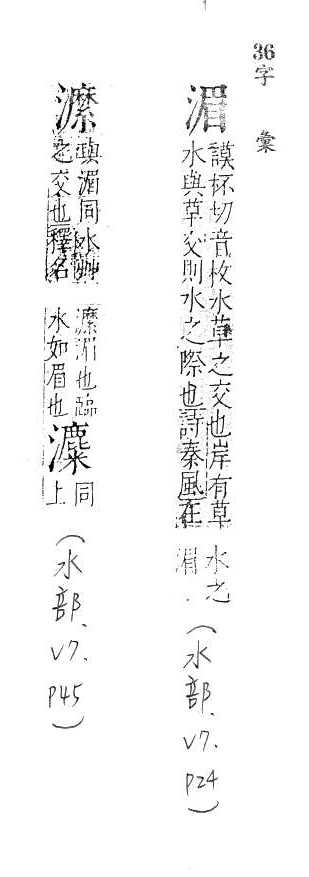 36字 彙
湄
謨杯切音枚水草之交也岸有草
水與草交則水之際也詩秦風在
水之
湄
(水部、V7. P24)
與湄同水艸
之交也釋名
湄也臨
水如眉也
同
上
(水部、V7. P45)